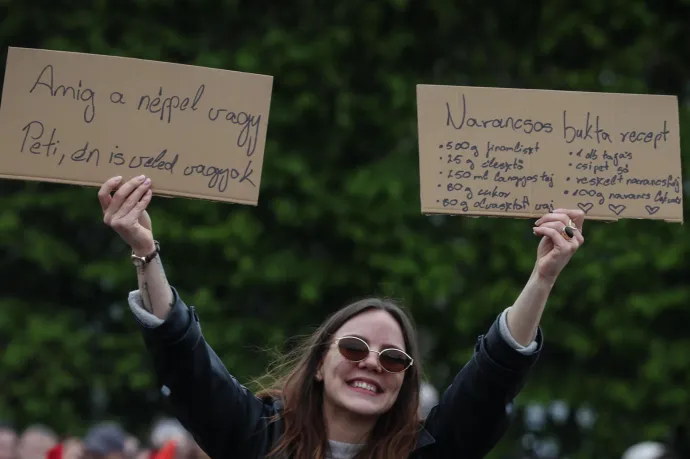 Amíg a néppel vagy
Peti, én is veled vagyok
Narancsos bukta recept
• 500g finomliszt
• 25g élesztő
• 250 ml langyos tej
• 80g cukor
• 80g olvasztott vaj
• 1 db tojás
• csipet só
• reszelt narancshéj
• 100g narancs